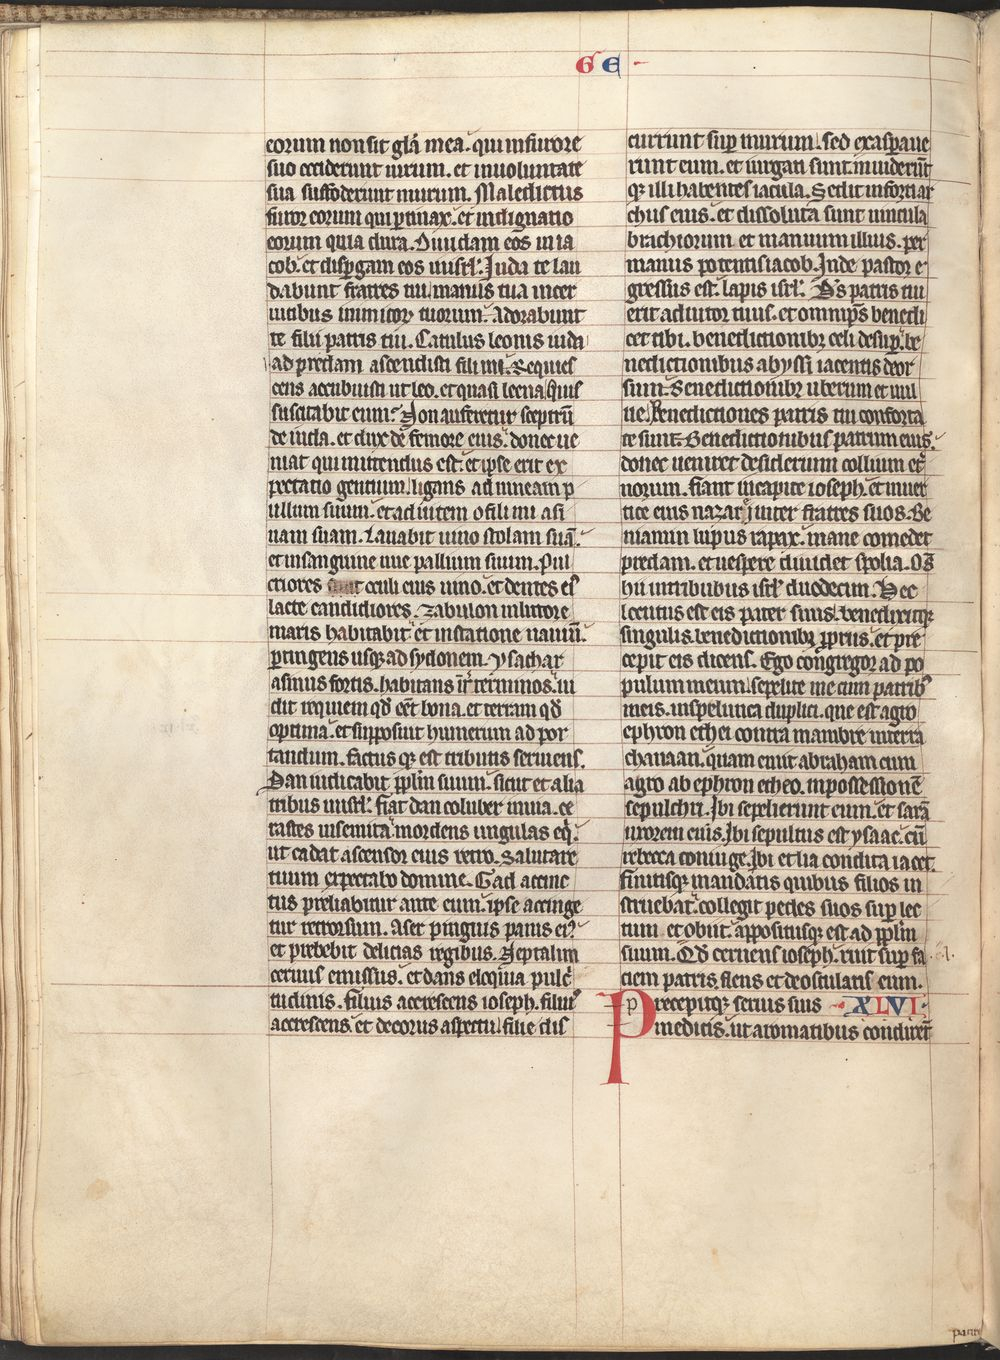 GE
eorum non sit gl̄a mea. qui in furore
suo occiderunt uirum. et in uoluntate
sua suffoderunt murum. Maledictus
furor eorum qui ꝑtinax. et indignatio
eorum quia dura. Diuidam eos in ia
cob. et disꝑgam eos in isrl̄. Iuda te lau
dabunt fratres tui. manus tua in cer
uicibus inimicoꝝ tuorum. Adorabunt
te filii patris tui. Catulus leonis iuda
ad predam ascendisti fili mi. Requies
cens accubuisti ut leo. et quasi leena. Quis
suscitabit eum. Non auferetur sceptrū
de iuda. et dux de femore eius. donec ue
niat qui mittendus est. et ipse erit ex
pectatio gentium. ligans ad uineam p
ullum suum. et ad uitem o fili mi asi
nam suam. Lauabit uino stolam suā.
et in sanguine uue pallium suum. Pul
criores sunt oculi eius uino. et dentes eiꝰ
lacte candidiores. Zabulon in littore
maris habitabit et in statione nauiū.
ꝑtingens usqꝫ ad sydonem. Ysachar
asinus fortis. habitans int̄ terminos. ui
dit requiem qd̄ eēt bona. et terram qd̄
optima. et supposuit humerum ad por
tandum. factus qꝫ est tributis seruiens.
Dan iudicabit ppl̄m suum. sicut et alia
tribus in isrl̄. fiat dan coluber in uia. ce
rastes in semita. mordens ungulas eqi.
ut cadat ascensor eius retro. Salutare
tuum expectabo domine. Gad accinc
tus preliabitur ante eum. ipse accinge
tur retrorsum. Aser pinguis panis eiꝰ
et prebebit delicias regibus. Neptalim
ceruus emissus. et dans eloquia pulc̄
tudinis. filius accrescens ioseph. filiuꝰ
accrescens et decorus aspectu. filie dis
currunt suꝑ murum. sed exasꝑaue
runt eum. et iurgati sunt. inuiderūt
qꝫ illi habentes iacula. Sedit in forti ar
chus eius. et dissoluta sunt uincula
brachiorum et manuum illius. per
manus potentis iacob. Inde pastor e
gressus est. lapis isrl̄. Ds̄ patris tui
erit adiutor tuus. et omnip̄s benedi
cet tibi. benedictionibꝫ celi desuꝑ. be
nedictionibus abyssi iacentis deor
sum. Benedictionibꝫ uberum et uul
ue. Benedictiones patris tui conforta
te sunt. Benedictionibus patrum eius.
donec ueniret desiderium collium et̄
norum. fiant in capite ioseph. et in uer
tice eius nazarei inter fratres suos. Be
niamin lupus rapax. mane comedet
predam. et uespere diuidet spolia. Om̄s
hii in tribubus isrl̄ duodecim. Hec
locutus est eis pater suus. benedixitqꝫ
singulis benedictionibꝫ ꝓpriis. et pre
cepit eis dicens. Ego congregor ad po
pulum meum. sepelite me cum patribꝰ
meis. in spelunca duplici. que est agro
ephron ethei contra mambre in terra
chanaan. quam emit abraham cum
agro ab ephron etheo. in possessionē
sepulchri. Ibi sepelierunt eum. et sarā
uxorem eius. Ibi sepultus est ysaac. cū
rebecca coniuge. Ibi et lia condita iacet.
finitisqꝫ mandatis quibus filios in
struebat. collegit pedes suos suꝑ lec
tum et obiit. appositusqꝫ est ad ppl̄m
suum. Qd̄ cernens ioseph. ruit suꝑ fa
ciem patris. flens et deosculans eum.
Precepitqꝫ seruis suis XLVI.
medicis. ut aromatibus condirēt